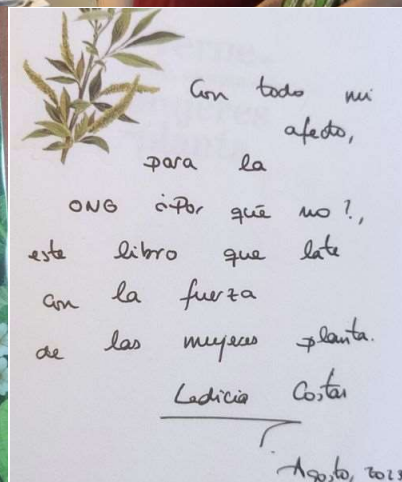 Con todo mi
afecto,
para la
ONG ¿Por qué no?,
este libro que late
con la fuerza
de las mujeres planta.
Ledicia Costas
Agosto, 2023